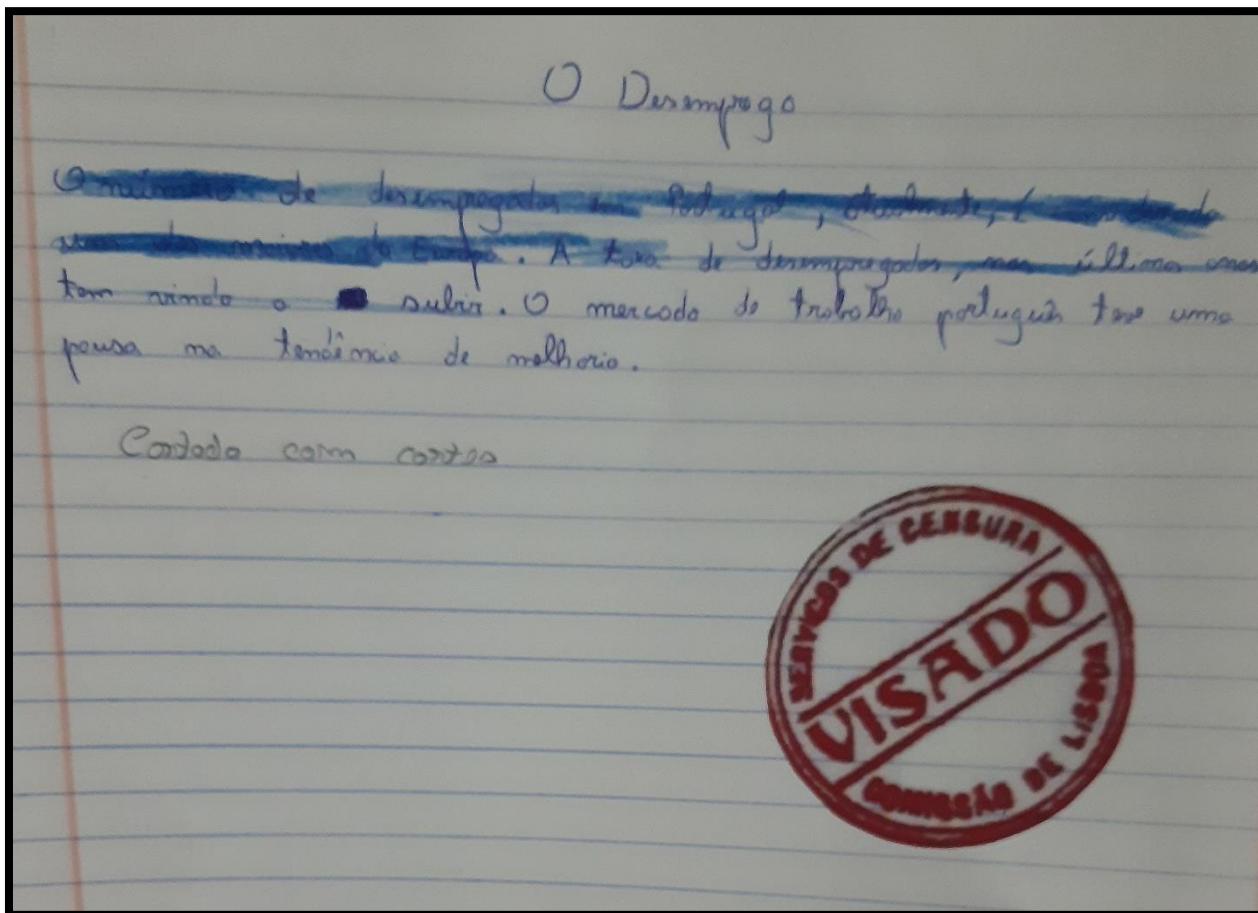 O Desemprego
O número de desempregados em Portugal, atualmente, é
da Europa. A taxa de desempregados, nos últimos anos
tem vindo a subir. O mercado de trabalho português teve uma
pausa na tendência de melhoria.
Cortado com cortes
SERVIÇOS DE CENSURA
VISADO
COMISSÃO DE LISBOA